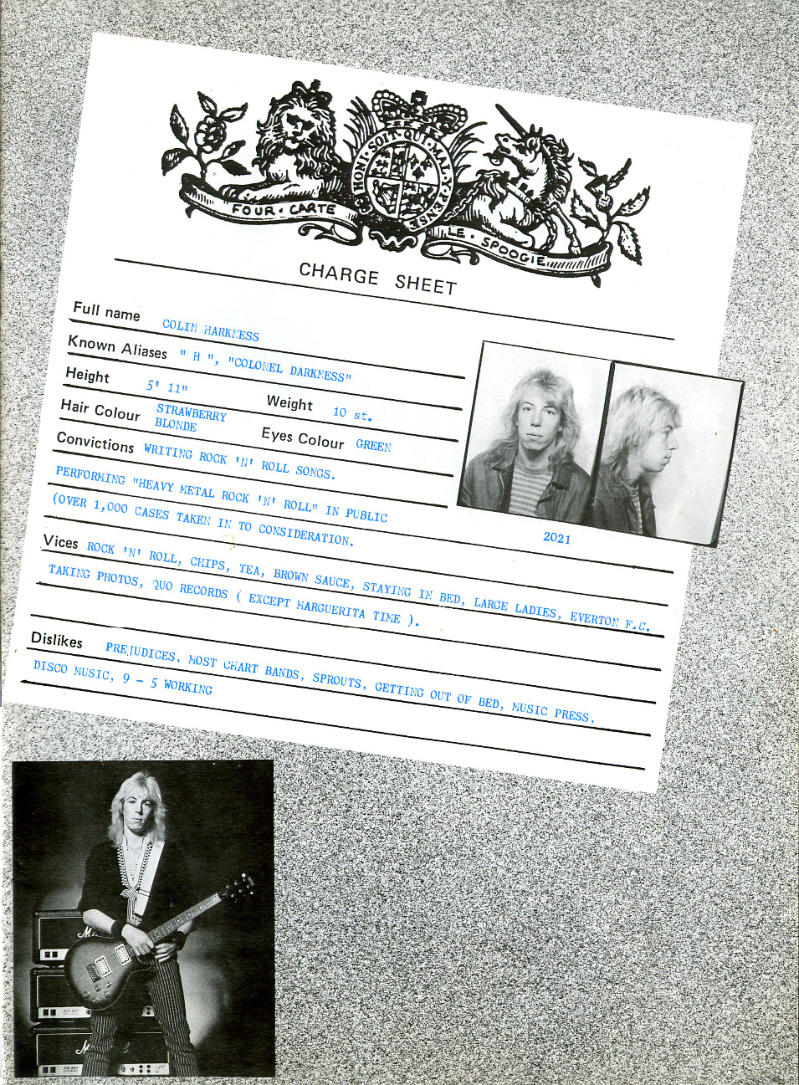 HONI · SOIT · QUI · MAL · Y · PENSE
FOUR · CARTE
LE · SPOOGIE
CHARGE SHEET
Full name COLIN HARKNESS
Known Aliases " H ", "COLONEL DARKNESS"
Height 5' 11" Weight 10 st.
Hair Colour STRAWBERRY BLONDE Eyes Colour GREEN
Convictions WRITING ROCK 'N' ROLL SONGS.
PERFORMING "HEAVY METAL ROCK 'N' ROLL" IN PUBLIC
(OVER 1,000 CASES TAKEN IN TO CONSIDERATION.
2021
Vices ROCK 'N' ROLL, CHIPS, TEA, BROWN SAUCE, STAYING IN BED, LARGE LADIES, EVERTON F.C.
TAKING PHOTOS, QUO RECORDS ( EXCEPT MARGUERITA TIME ).
Dislikes PREJUDICES, MOST CHART BANDS, SPROUTS, GETTING OUT OF BED, MUSIC PRESS,
DISCO MUSIC, 9 - 5 WORKING